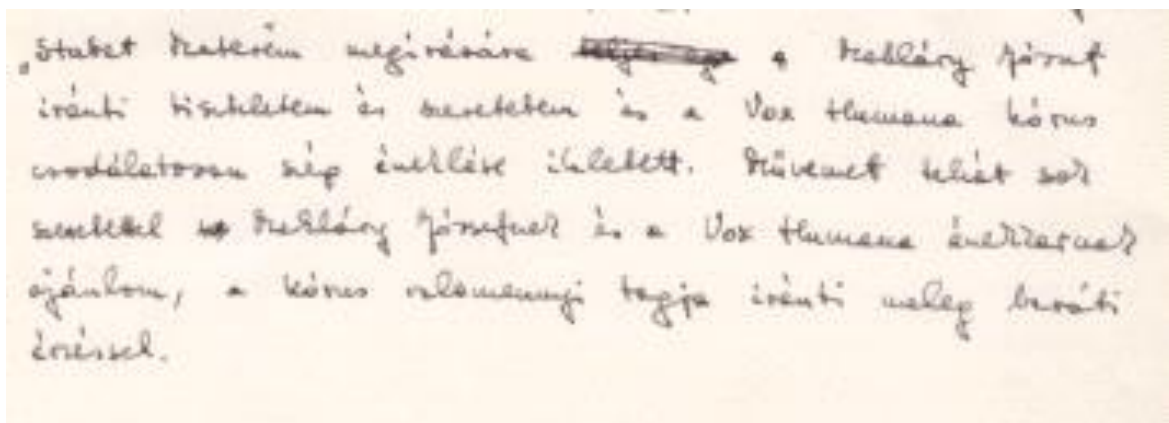 „Stabat Materem megírására a Makláry József
iránti tiszteletem és szeretetem és a Vox Humana kórus
csodálatosan szép éneklése ihletett. Művemet tehát sok
szeretettel Makláry Józsefnek és a Vox Humana énekkarnak
ajánlom, a kórus valamennyi tagja iránti meleg baráti
érzéssel.